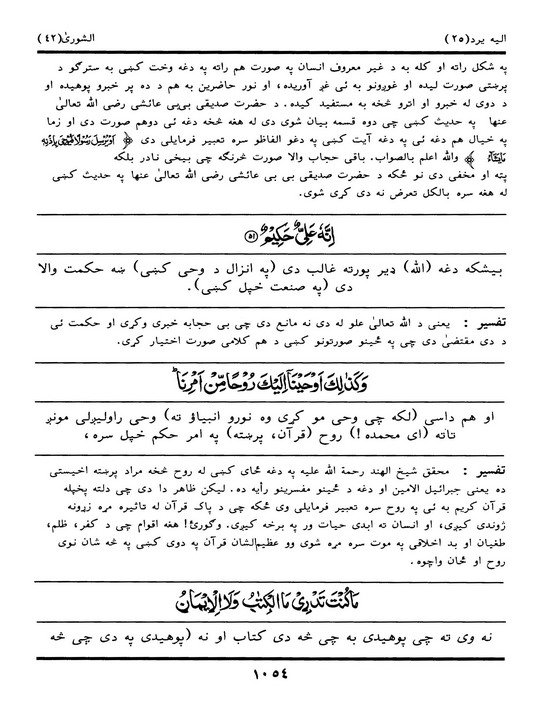 الیه یرد(۲۵)
الشوریٰ(۴۲)
په شکل راته او کله به د غیر معروف انسان په صورت هم راته په دغه وخت کښی به سترګو د
پرښتی صورت لیده او غوږونو به ئی غږ آوریده، او نور حاضرین به هم د ده پر خبرو پوهیده او
د دوی له خبرو او اترو څخه به مستفید کیده. د حضرت صدیقی بی بی عائشی رضی الله تعالیٰ
عنها په حدیث کښی چی دوه قسمه بیان شوی دی له هغه څخه دغه ئی دوهم صورت دی او زما
په خیال هم دغه ئی په دغه آیت کښی په دغو الفاظو سره تعبیر فرمایلی دی ﴿ أَوْ يُرْسِلَ رَسُولًا فَيُوحِيَ بِإِذْنِهِ
مَا يَشَاءُ ﴾ والله اعلم بالصواب. باقی حجاب والا صورت څرنګه چی بیخی نادر بلکه
پته او مخفی دی نو ځکه د حضرت صدیقی بی بی عائشی رضی الله تعالیٰ عنها په حدیث کښی
له هغه سره بالکل تعرض نه دی کړی شوی.
إِنَّهُ عَلِيٌّ حَكِيمٌ ۝۵۱
بیشکه دغه (الله) ډیر پورته غالب دی (په انزال د وحی کښی) ښه حکمت والا
دی (په صنعت خپل کښی).
تفسیر : یعنی د الله تعالیٰ علو له دی نه مانع دی چی بی حجابه خبری وکړی او حکمت ئی
د دی مقتضی دی چی په ځینو صورتونو کښی د هم کلامی صورت اختیار کړی.
وَكَذٰلِكَ أَوْحَيْنَا إِلَيْكَ رُوحًا مِّنْ أَمْرِنَا ؕ
او هم داسی (لکه چی وحی مو کړی وه نورو انبیاؤ ته) وحی راولیږلی مونږ
تاته (ای محمده!) روح (قرآن، پرښته) په امر حکم خپل سره،
تفسیر : محقق شیخ الهند رحمة الله علیه په دغه ځای کښی له روح څخه مراد پرښته اخیستی
ده یعنی جبرائیل الامین او دغه د ځینو مفسرینو رأیه ده. لیکن ظاهر دا دی چی دلته پخپله
قرآن کریم به ئی په روح سره تعبیر فرمایلی وی ځکه چی د پاک قرآن له تاثیره مړه زړونه
ژوندی کیږی، او انسان ته ابدی حیات ور په برخه کیږی. وګورئ! هغه اقوام چی د کفر، ظلم،
طغیان او بد اخلاقی په موت سره مړه شوی وو عظیم‌الشان قرآن په دوی کښی په څه شان نوی
روح او ځان واچوه.
مَا كُنْتَ تَدْرِي مَا الْكِتٰبُ وَلَا الْإِيمَانُ
نه وی ته چی پوهیدی به چی څه دی کتاب او نه (پوهیدی په دی چی څه
۱۰۵٤